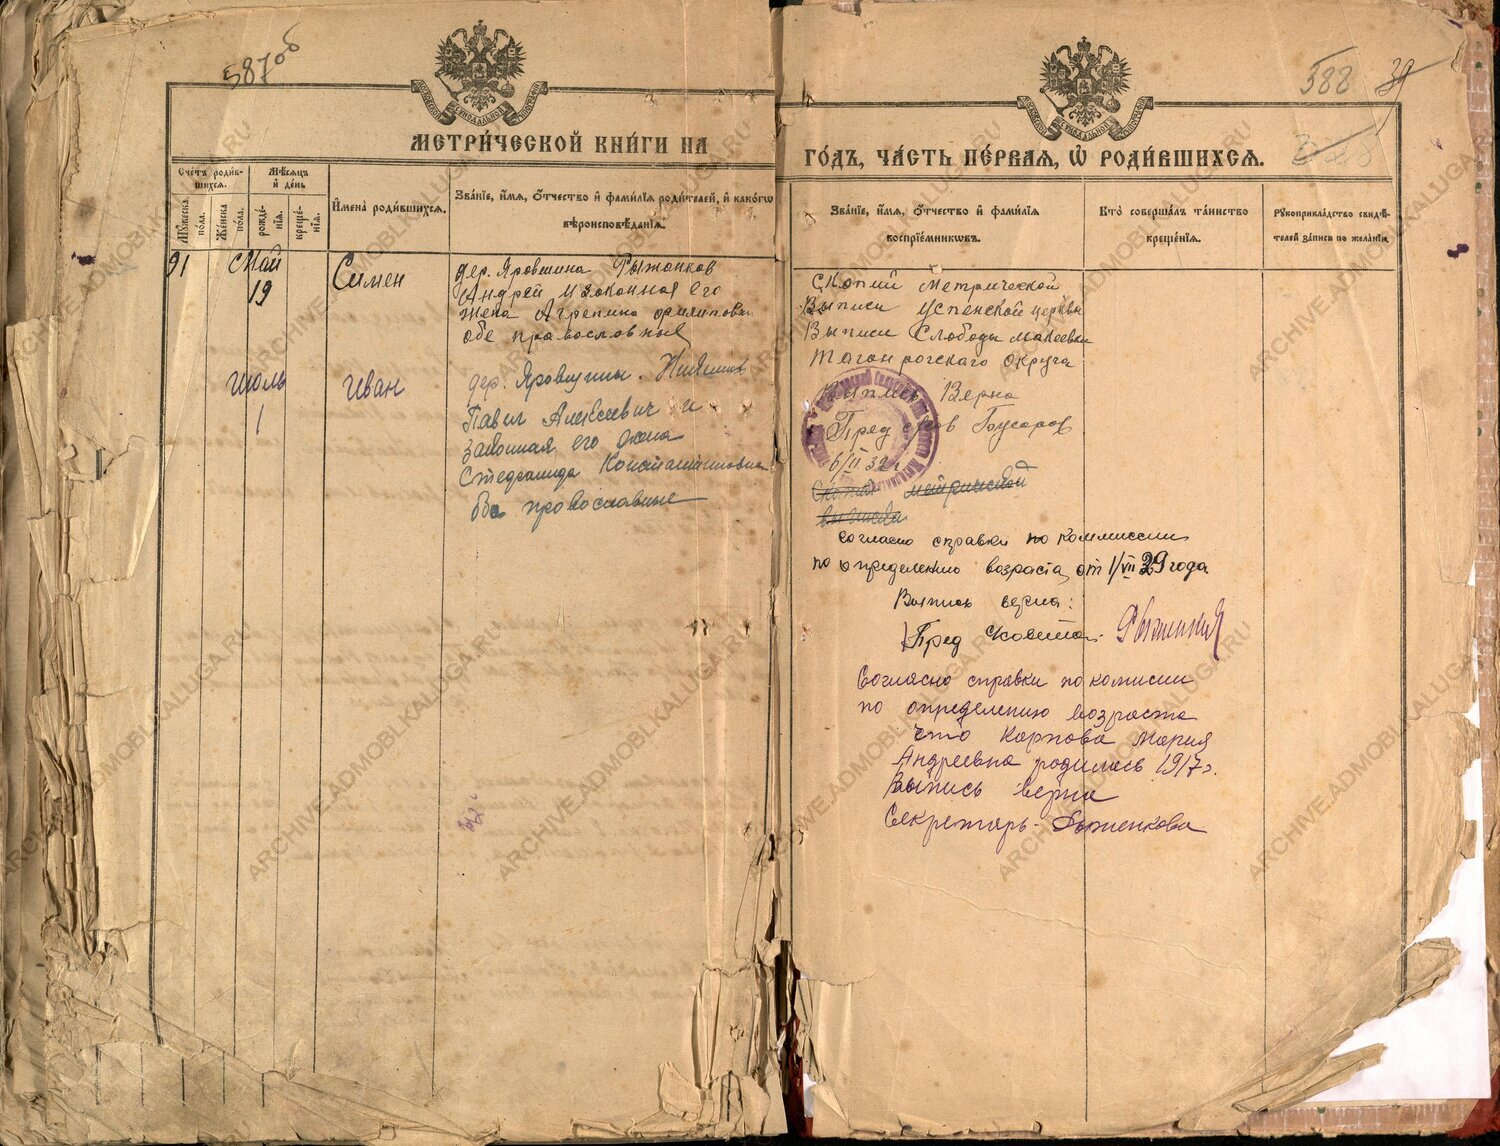 587об
МЕТРИ́ЧЕСКОЙ КНИ́ГИ НА
Сче́тъ роди́в-
шихся.
Мѣ́сяцъ
и҆ де́нь
Мꙋ́жеска
по́ла.
Же́нска
по́ла.
рожде́-
нїя.
креще́-
нїя.
И҆мена̀ роди́вшихся.
Зва́нїе, и҆́мя, ѻ҆́тчество и҆ фами́лїя роди́телей, и҆ како́гѡ
вѣроисповѣ́данїя.
91
Май
19
Симен
дер. Яровщина Рыжонков
Андрей и законная его
жена Агрепина Филипови
обе православныя
июль
1
Иван
дер. Яровщины.
Павел Алексеевич и
законная его жена
Степанида Константиновна
Ва православные
588
39
ГО́ДЪ, ЧА́СТЬ ПЕ́РВАЯ, Ѡ҆ РОДИ́ВШИХСЯ.
Зва́нїе, и҆́мя, ѻ҆́тчество и҆ фами́лїя
воспрїе́мникѡвъ.
Кто̀ соверша́лъ та́инство
креще́нїя.
Рꙋкоприкла́дство свидѣ́-
телей за́писи по жела́нїю.
Скопии метрической
Выписи успенской церквы
Выписи Слободы макеевки
Таганрогского округа
Выпись Верна
Пред
6/II 32 г
Скопия метрической
выписки
Согласно справки по коммиссии
по определению возраста от 1/VII 29 года
Выпись верна:
Пред
Согласно справки по комисии
по определению возраста
что Карпова Мария
Андреевна родилась 1917 г.
Выпись верна
Секретарь - Рыженкова
ARCHIVE.ADMOBLKALUGA.RU